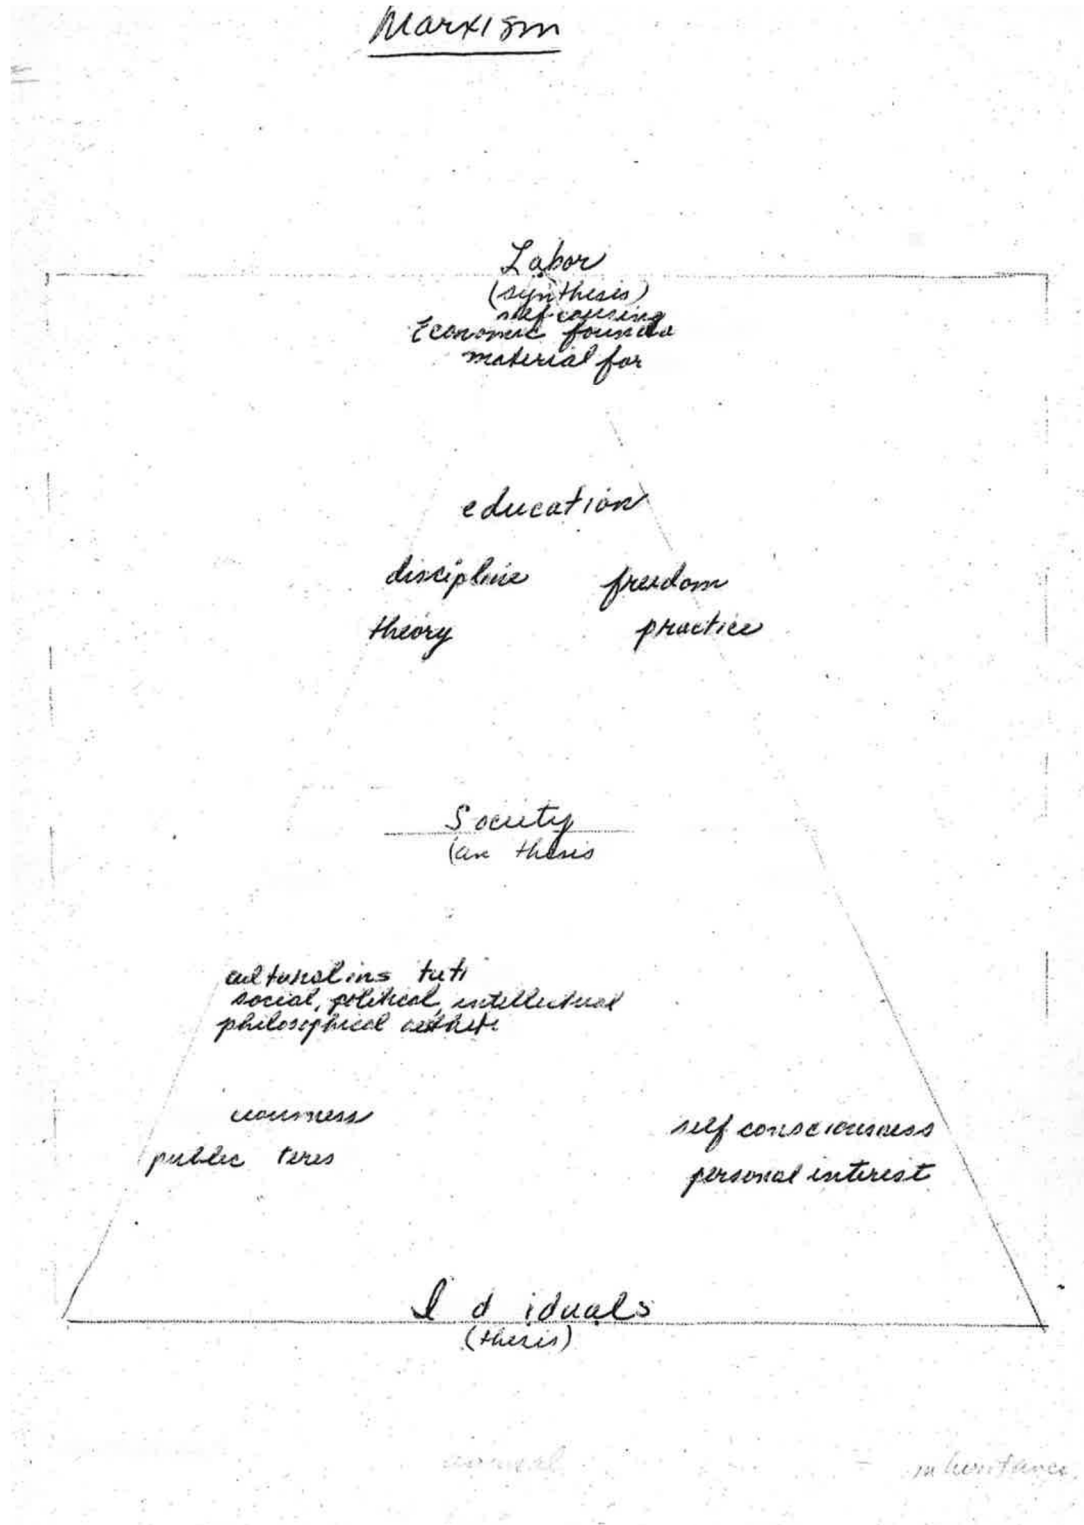 Marxism
Labor
(synthesis)
self-causing
Economic founda
material for
education
discipline freedom
theory practice
Society
(an thesis
cultural ins tuti
social, political, intellectual
philosophical aestheti
self consciousness
public teres
personal interest
I d iduals
(thesis)
inheritance